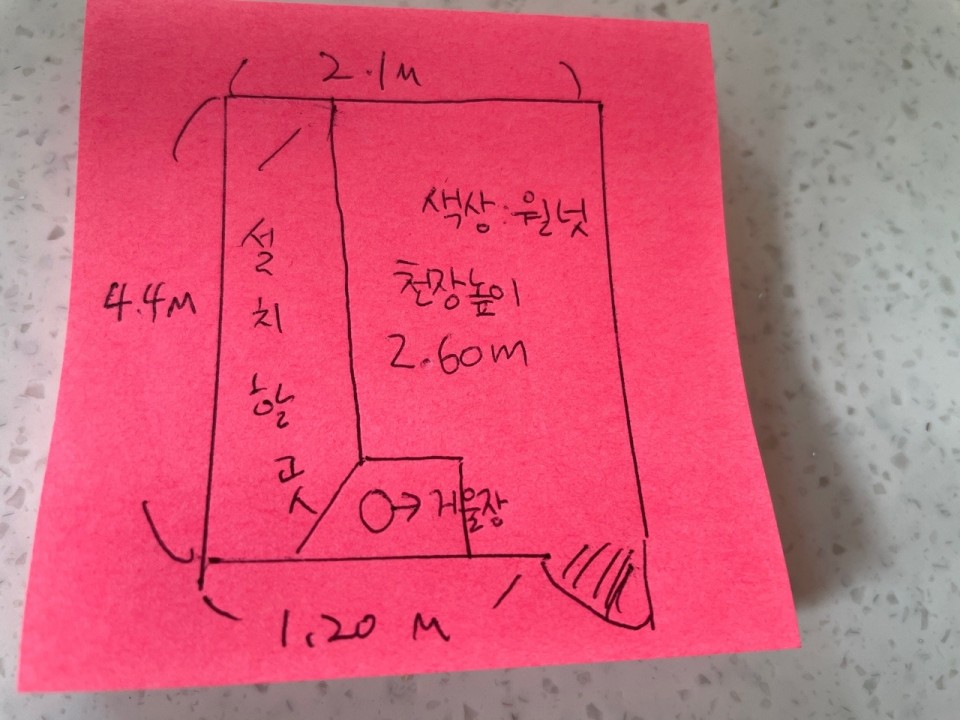 2.1M
4.4M
설
치
할
곳
색상:월넛
천장높이
2.60m
→ 거울장
1.20 M